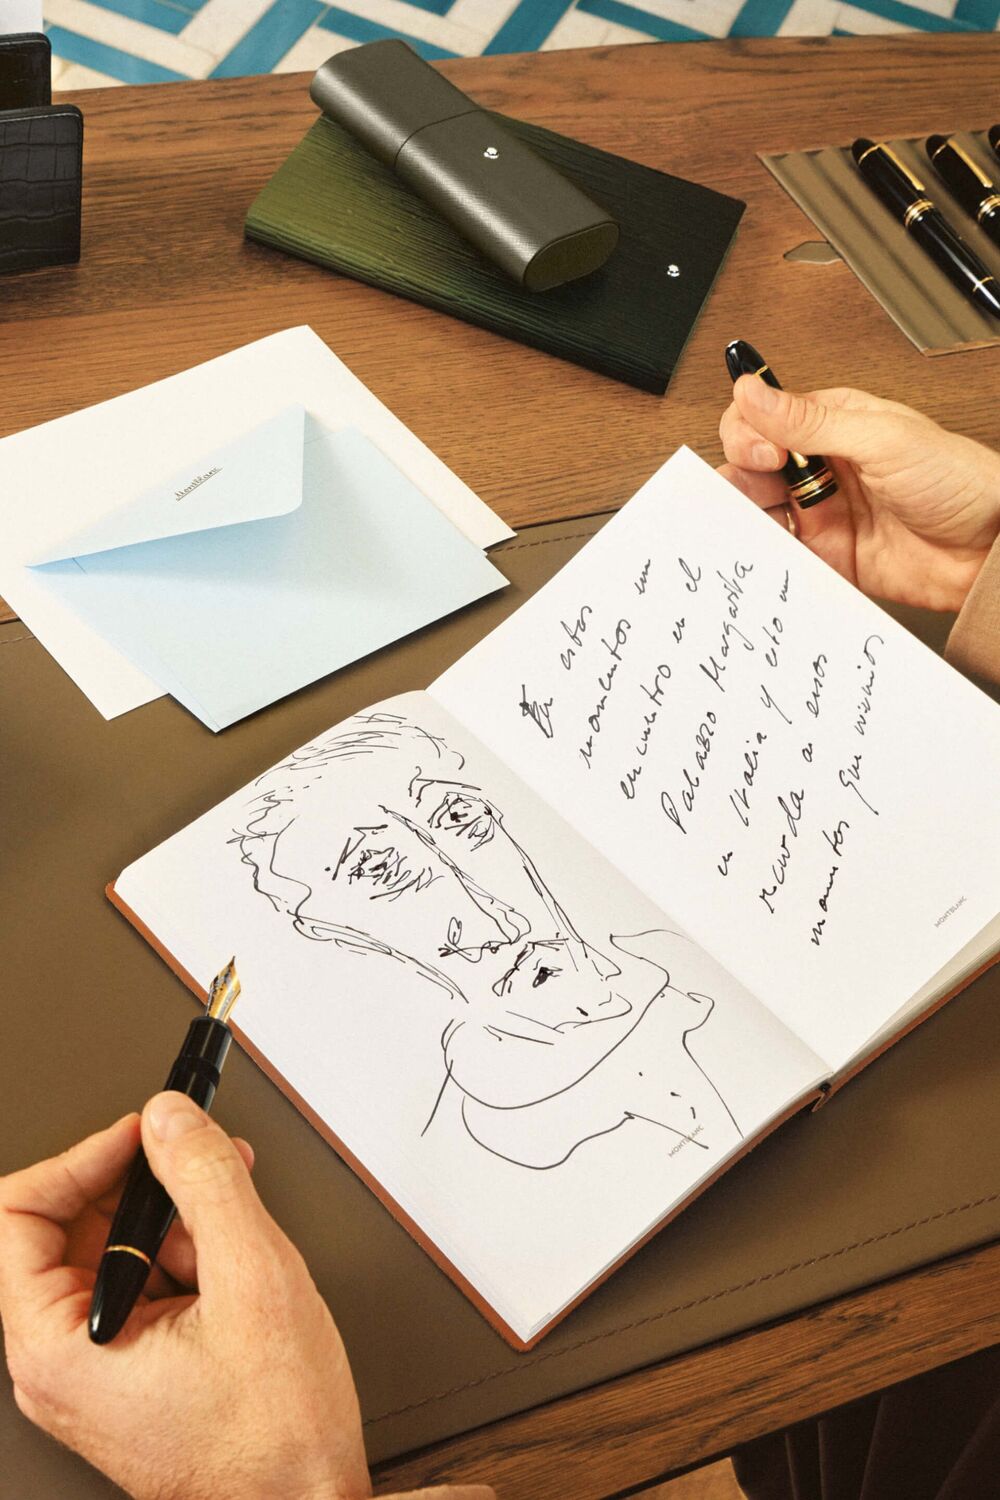 Montblanc
En estos
momentos me
encuentro en el
Palazzo Margarita
en Italia y esto me
recuerda a esos
momentos que vivimos
MONTBLANC
MONTBLANC